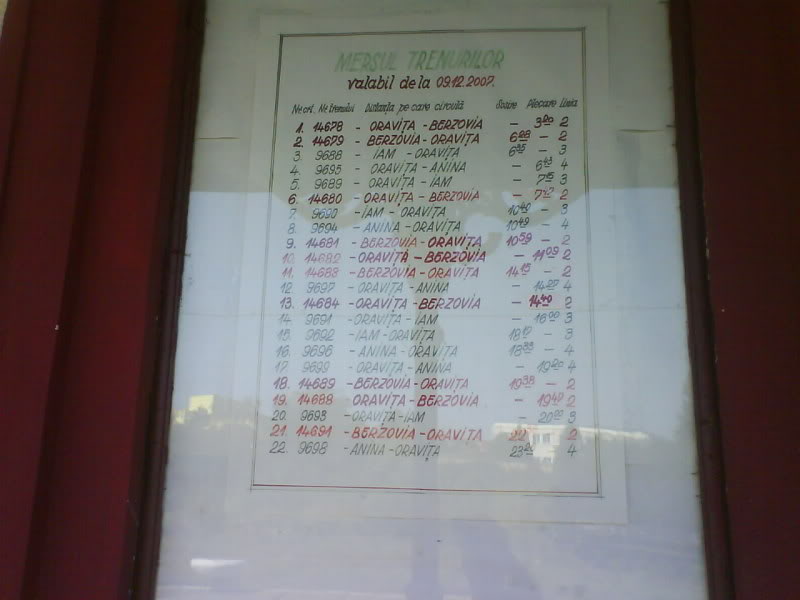 MERSUL TRENURILOR
valabil de la 09.12.2007.
Nr crt. Nr trenului Distanța pe care circulă Sosire Plecare Linia
1. 14678 - ORAVIȚA - BERZOVIA - 3 2
2. 14679 - BERZOVIA - ORAVIȚA 6 - 2
3. 9688 - IAM - ORAVIȚA 6 - 3
4. 9695 - ORAVIȚA - ANINA - 6 4
5. 9689 - ORAVIȚA - IAM - 7 3
6. 14680 - ORAVIȚA - BERZOVIA - 7 2
7. 9690 - IAM - ORAVIȚA 10 - 3
8. 9694 - ANINA - ORAVIȚA 10 - 4
9. 14681 - BERZOVIA - ORAVIȚA 10 59 - 2
10. 14682 - ORAVIȚA - BERZOVIA - 11 09 2
11. 14683 - BERZOVIA - ORAVIȚA 14 15 - 2
12. 9697 - ORAVIȚA - ANINA - 14 4
13. 14684 - ORAVIȚA - BERZOVIA - 14 40 2
14. 9691 - ORAVIȚA - IAM - 16 00 3
15. 9692 - IAM - ORAVIȚA 18 - 3
16. 9696 - ANINA - ORAVIȚA 18 - 4
17. 9699 - ORAVIȚA - ANINA - 19 4
18. 14689 - BERZOVIA - ORAVIȚA 19 38 - 2
19. 14688 ORAVIȚA - BERZOVIA - 19 2
20. 9693 - ORAVIȚA - IAM - 20 3
21. 14691 - BERZOVIA - ORAVIȚA 22 2
22. 9698 - ANINA - ORAVIȚA 23 4